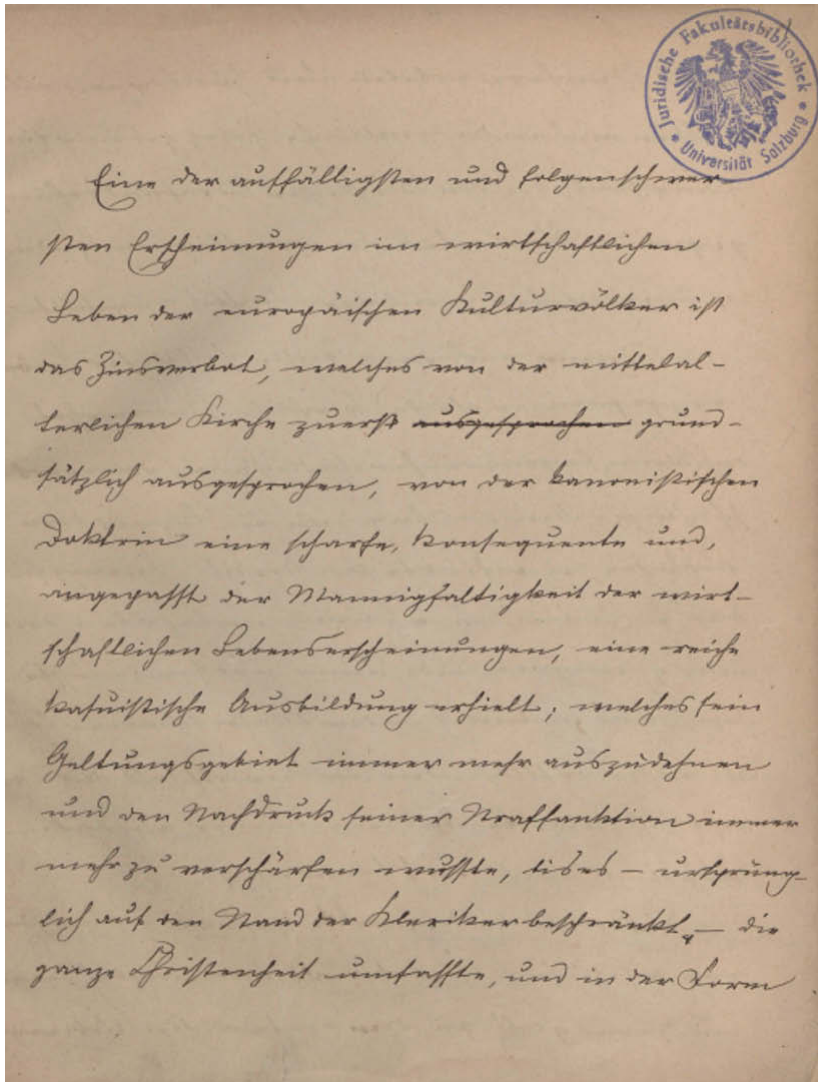 Juridische Fakultätsbibliothek
* Universität Salzburg *
Eine der auffälligsten und folgenschwer-
sten Erscheinungen im wirtschaftlichen
Leben der europäischen Kulturvölker ist
das Zinsverbot, welches von der mittelal-
terlichen Kirche zuerst ausgesprochen grund-
sätzlich ausgesprochen, von der kanonistischen
Doktrin eine scharfe, konsequente und,
angepasst der Mannigfaltigkeit der wirt-
schaftlichen Lebenserscheinungen, eine reiche
kasuistische Ausbildung erhielt; welches sein
Geltungsgebiet immer mehr auszudehnen
und den Nachdruck seiner Strafsanktion immer
mehr zu verschärfen wusste, bis es – ursprüng-
lich auf den Stand der Kleriker beschränkt, – die
ganze Christenheit umfasste, und in der Form